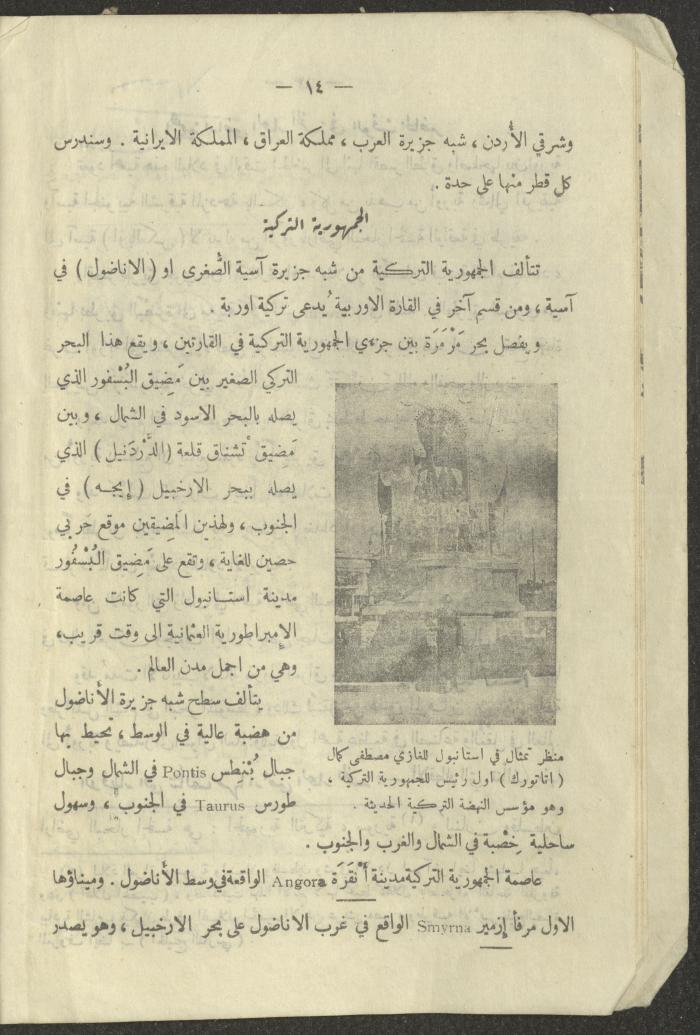 — ١٤ —
وشرقي الأُردن ، شبه جزيرة العرب ، مملكة العراق ، المملكة الايرانية . وسندرس
كل قطر منها على حدة .
الجمهورية التركية
تتألف الجمهورية التركية من شبه جزيرة آسية الصُّغرى او ( الاناضول ) في
آسية ، ومن قسم آخر في القارة الاوربية يُدعى تركية اوربة .
ويفصل بحر مَرْمَرَة بين جزءي الجمهورية التركية في القارتين ، ويقع هذا البحر
التركي الصغير بين مَضِيق البُسْفور الذي
يصله بالبحر الاسود في الشمال ، وبين
مَضِيق تُشناق قلعة (الدَّرْدَنيل ) الذي
يصله ببحر الارخبيل ( إيجه ) في
الجنوب ، ولهذين المَضِيقين موقع حَربي
حصين للغاية ، وتقع على مَضِيق البُسْفُور
مدينة استانبول التي كانت عاصمة
الإمبراطورية العثمانية الى وقت قريب،
وهي من اجمل مدن العالم .
يتألف سطح شبه جزيرة الأناضول
من هضبة عالية في الوسط ، تحيط بها
جبال بُنْطِس Pontis في الشمال وجبال
طورس Taurus في الجنوب ، وسهول
منظر تمثال في استانبول للغازي مصطفى كمال
( اتاتورك ) اول رئيس للجمهورية التركية ،
وهو مؤسس النهضة التركية الحديثة .
ساحلية خِصْبة في الشمال والغرب والجنوب .
عاصمة الجمهورية التركية مدينة أَنْقَرَة Angora الواقعة في وسط الأناضول . وميناؤها
الاول مرفأ إزمير Smyrna الواقع في غرب الاناضول على بحر الارخبيل ، وهو يصدر